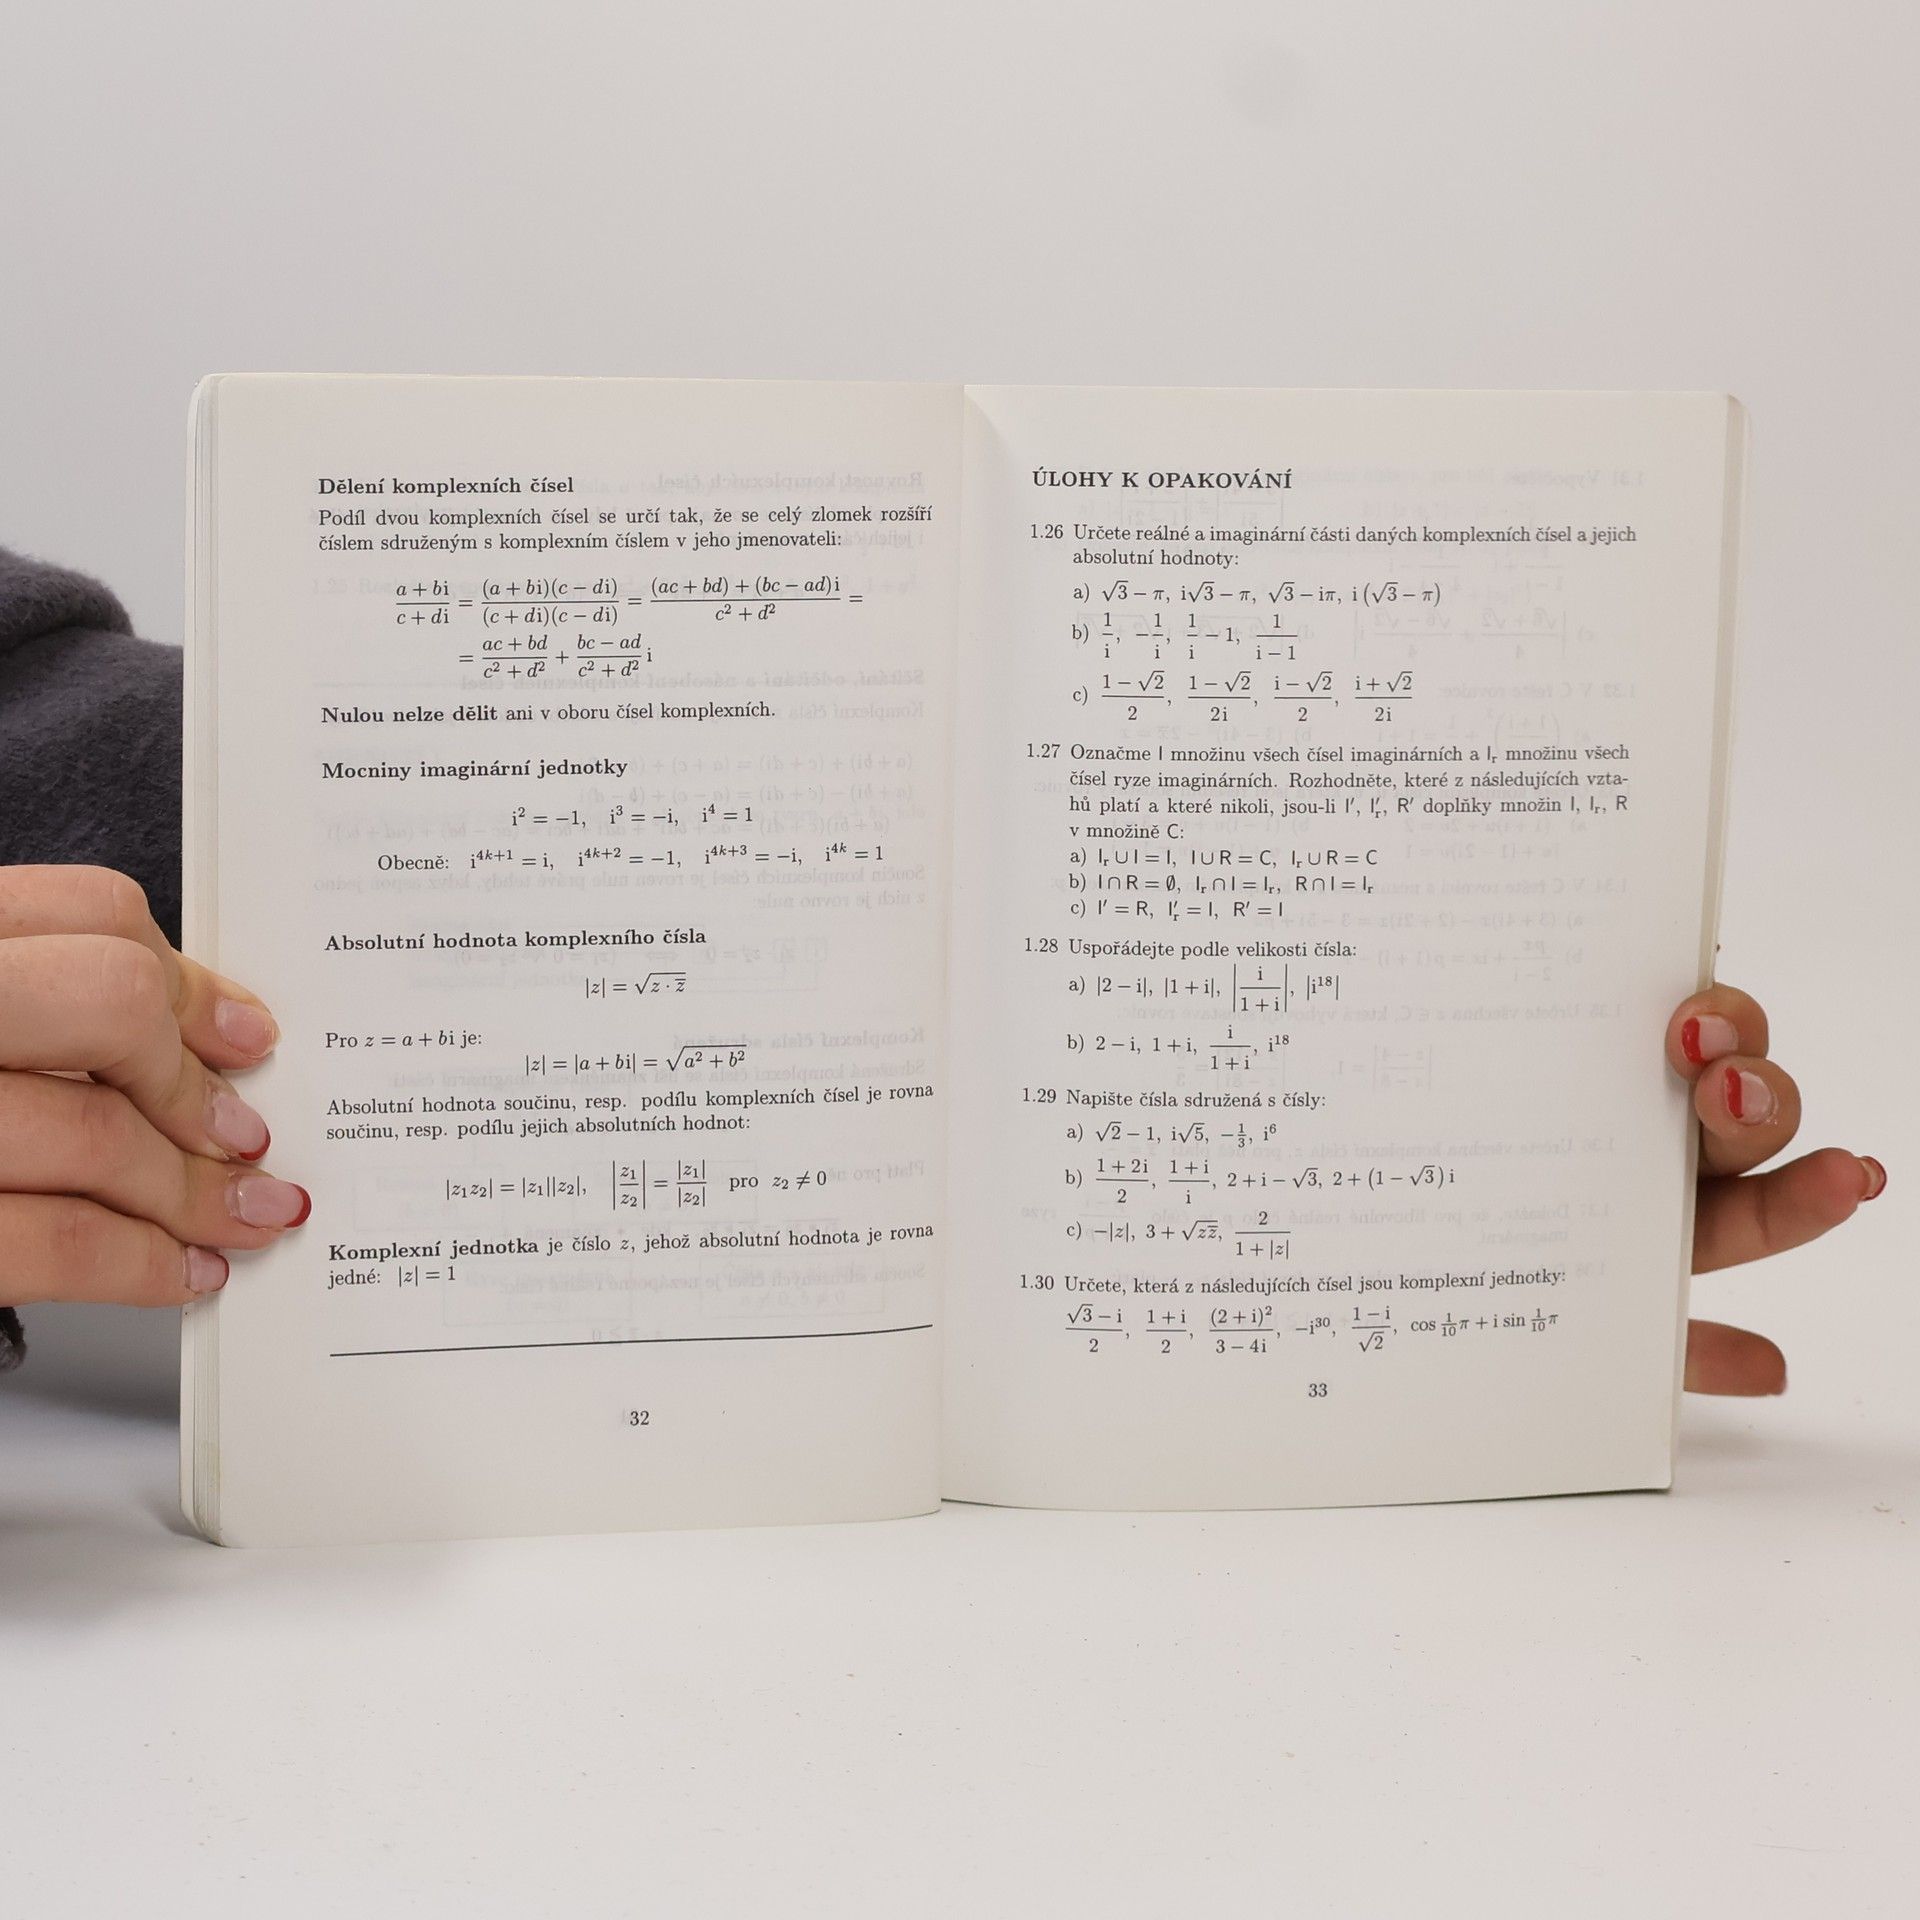 Dělení komplexních čísel
Podíl dvou komplexních čísel se určí tak, že se celý zlomek rozšíří
číslem sdruženým s komplexním číslem v jeho jmenovateli:
(a + bi)/(c + di) = ((a + bi)(c − di))/((c + di)(c − di)) = ((ac + bd) + (bc − ad)i)/(c² + d²) =
= (ac + bd)/(c² + d²) + (bc − ad)/(c² + d²) i
Nulou nelze dělit ani v oboru čísel komplexních.
Mocniny imaginární jednotky
i² = −1, i³ = −i, i⁴ = 1
Obecně: i⁴ᵏ⁺¹ = i, i⁴ᵏ⁺² = −1, i⁴ᵏ⁺³ = −i, i⁴ᵏ = 1
Absolutní hodnota komplexního čísla
|z| = √(z · z̅)
Pro z = a + bi je:
|z| = |a + bi| = √(a² + b²)
Absolutní hodnota součinu, resp. podílu komplexních čísel je rovna
součinu, resp. podílu jejich absolutních hodnot:
|z₁z₂| = |z₁||z₂|, |z₁/z₂| = |z₁|/|z₂| pro z₂ ≠ 0
Komplexní jednotka je číslo z, jehož absolutní hodnota je rovna
jedné: |z| = 1
32
ÚLOHY K OPAKOVÁNÍ
1.26 Určete reálné a imaginární části daných komplexních čísel a jejich
absolutní hodnoty:
a) √3 − π, i√3 − π, √3 − iπ, i(√3 − π)
b) 1/i, −1/i, 1/i − 1, 1/(i − 1)
c) (1 − √2)/2, (1 − √2)/2i, (i − √2)/2, (i + √2)/2i
1.27 Označme I množinu všech čísel imaginárních a Iᵣ množinu všech
čísel ryze imaginárních. Rozhodněte, které z následujících vzta-
hů platí a které nikoli, jsou-li I′, Iᵣ′, R′ doplňky množin I, Iᵣ, R
v množině C:
a) Iᵣ ∪ I = I, I ∪ R = C, Iᵣ ∪ R = C
b) I ∩ R = ∅, Iᵣ ∩ I = Iᵣ, R ∩ I = Iᵣ
c) I′ = R, Iᵣ′ = I, R′ = I
1.28 Uspořádejte podle velikosti čísla:
a) |2 − i|, |1 + i|, |i/(1 + i)|, |i¹⁸|
b) 2 − i, 1 + i, i/(1 + i), i¹⁸
1.29 Napište čísla sdružená s čísly:
a) √2 − 1, i√5, −1/3, i⁶
b) (1 + 2i)/2, (1 + i)/i, 2 + i − √3, 2 + (1 − √3)i
c) −|z|, 3 + √(zz̅), 2/(1 + |z|)
1.30 Určete, která z následujících čísel jsou komplexní jednotky:
(√3 − i)/2, (1 + i)/2, (2 + i)²/(3 − 4i), −i³⁰, (1 − i)/√2, cos 1/10 π + i sin 1/10 π
33